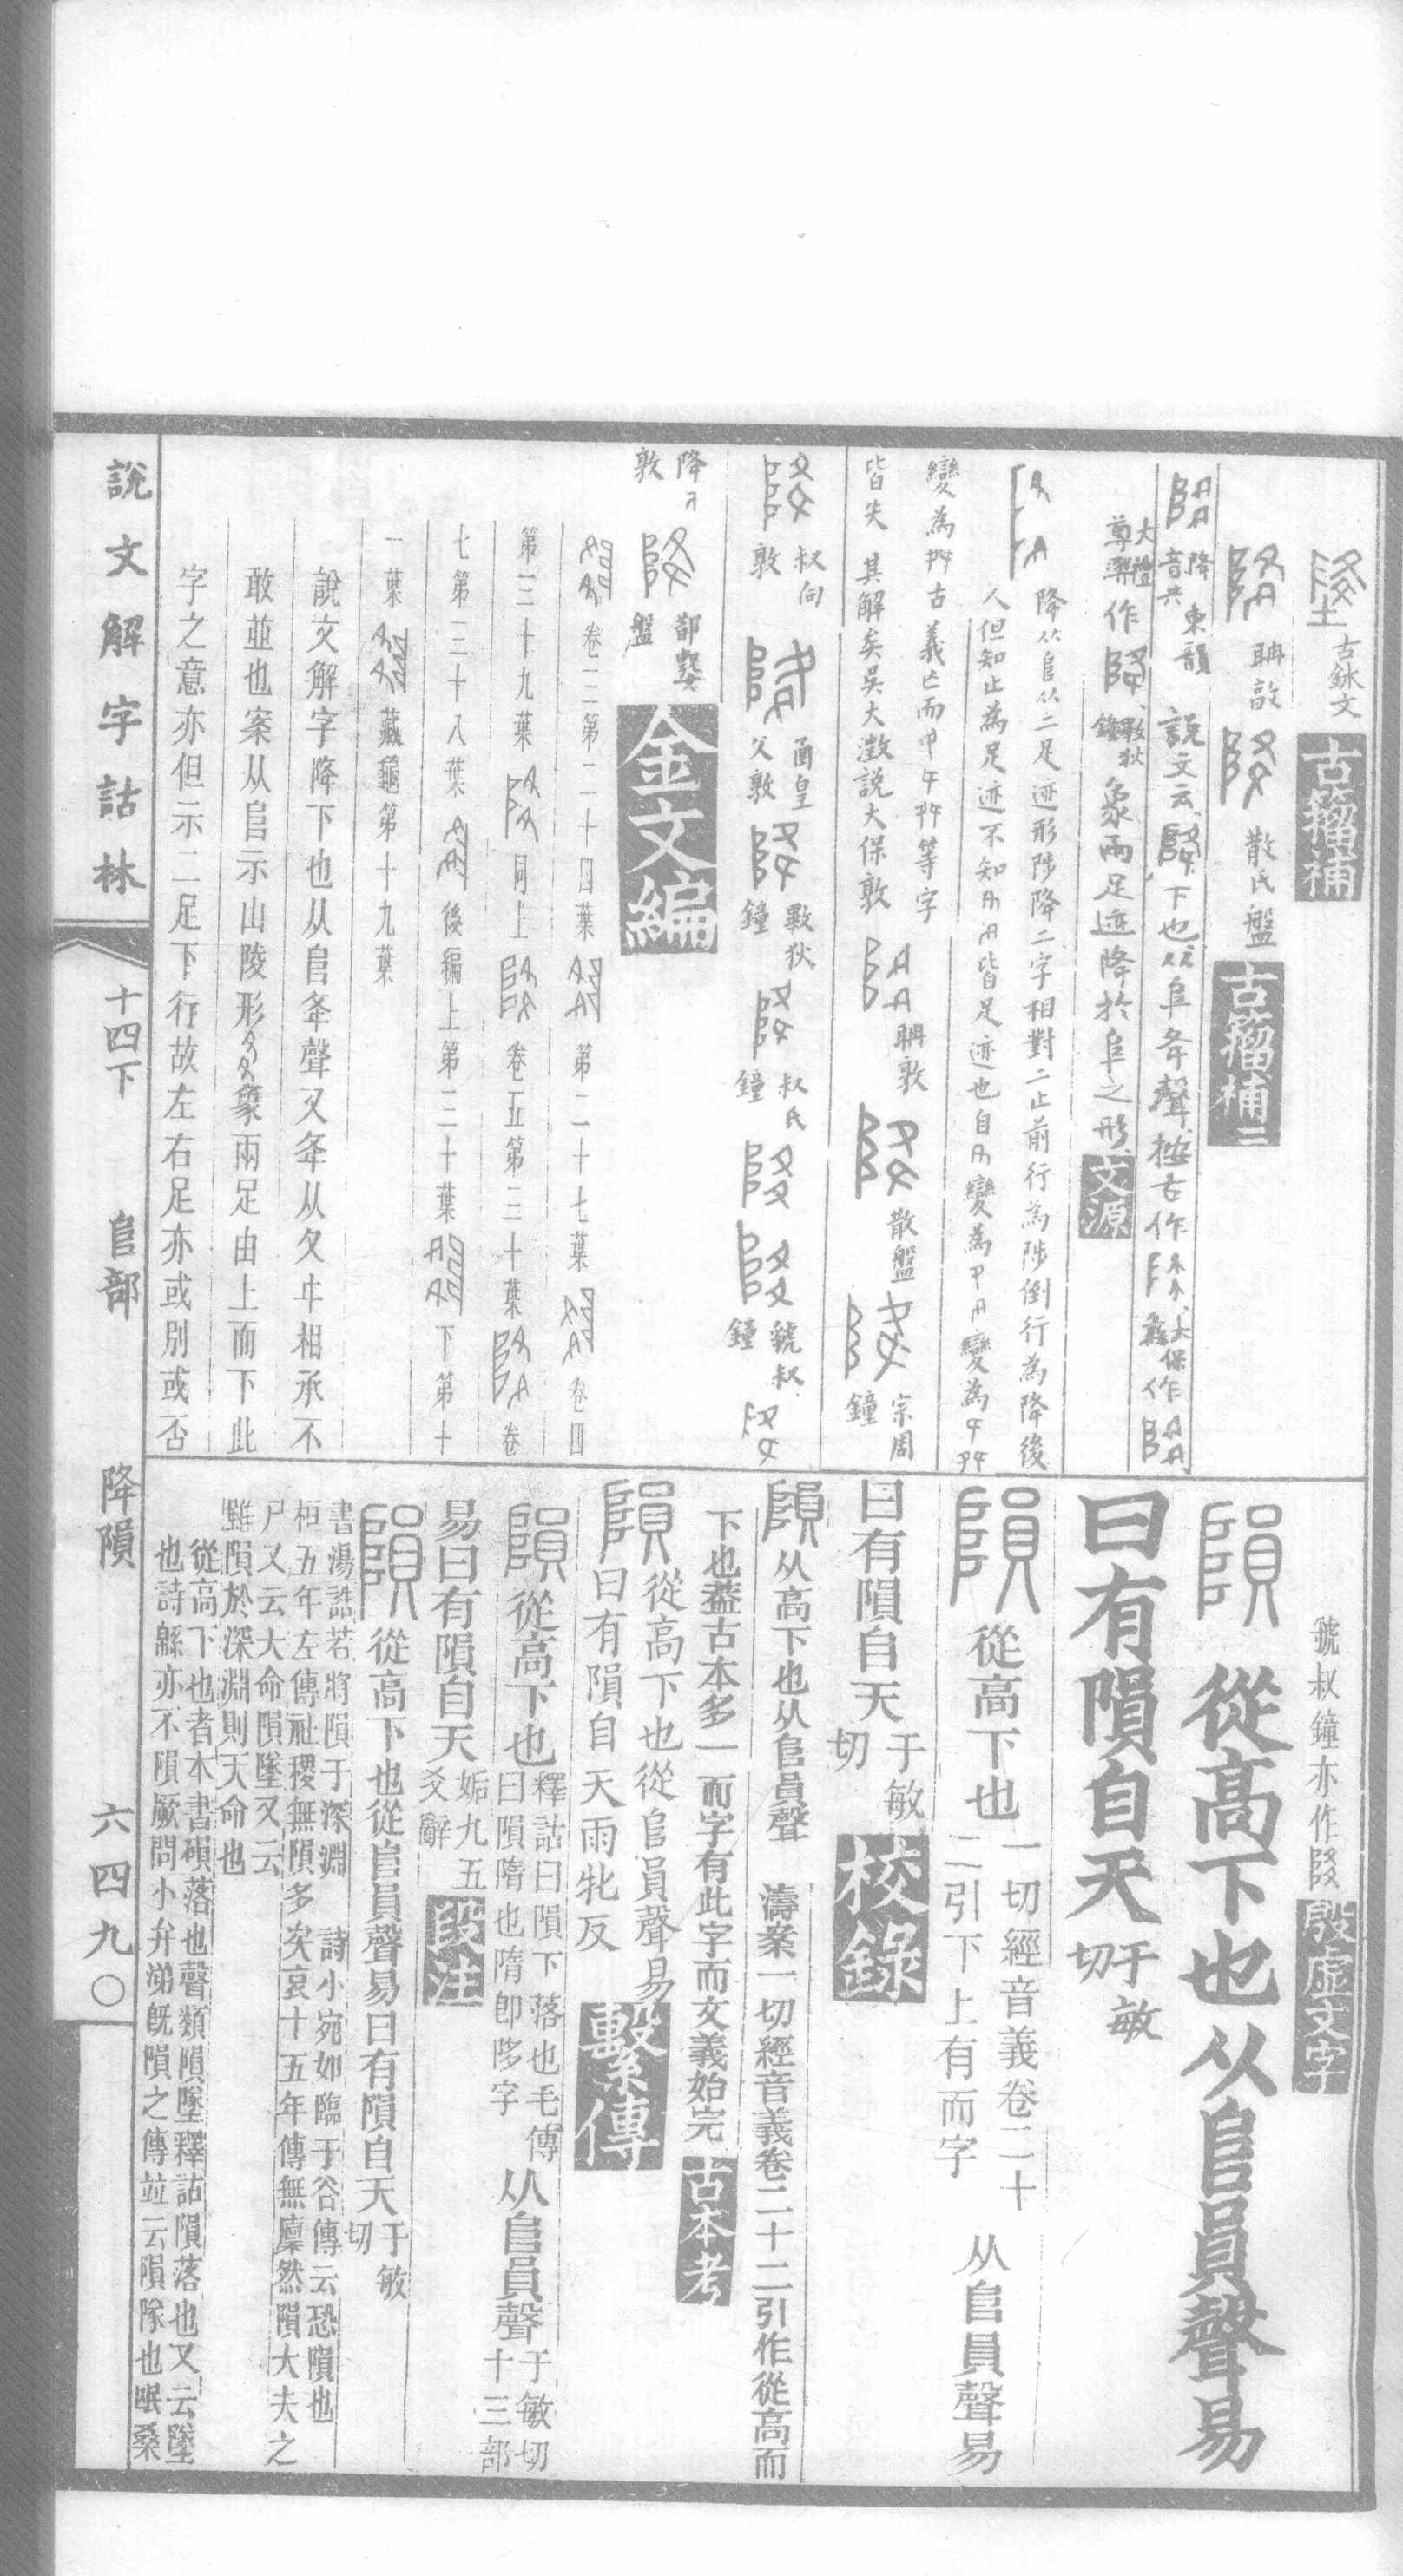 古鉨文
古籀補
𦖞𣪘
散氏盤
古籀補二
降
東韻
說文云
下也从𨸏夅聲按古作
大保作
作
象兩足迹降於𨸏之形
文源
降从𨸏从二足迹形陟降二字相對二止前行為陟倒行為降後
人但知止為足迹不知
皆足迹也自
變為
變為
變為
古義亡而
等字
皆失其解矣吳大澂說大保敦
敦
散盤
宗周鐘
叔向敦
函皇父敦
㪤狄鐘
叔氏鐘
虢叔鐘
降人敦
盤
金文編
卷二第二十四葉
第二十七葉
卷四
第三十九葉
同上
卷五第三十葉
卷
七第三十八葉
後編上第二十葉
下第十
一葉
藏龜第十九葉
說文解字降下也从𨸏夅聲又夅从夊㐄相承不
敢並也案从𨸏示山陵形
象兩足由上而下此
字之意亦但示二足下行故左右足亦或別或否
虢叔鐘亦作
殷虛文字
隕
從高下也从𨸏員聲易
曰有隕自天于敏切
隕
從高下也一切經音義卷二十二引下上有而字从𨸏員聲易
曰有隕自天于敏切
校錄
隕从高下也从𨸏員聲
濤案一切經音義卷二十二引作從高而
下也葢古本多一而字有此字而文義始完
古本考
隕從高下也從𨸏員聲易
曰有隕自天雨牝反
繫傳
隕從高下也釋詁曰隕下落也毛傳曰隕隋也隋卽陊字从𨸏員聲于敏切十三部
易曰有隕自天姤九五爻辭
段注
隕從高下也從𨸏員聲易曰有隕自天于敏切
書湯誥若將隕于深淵
詩小宛如臨于谷傳云恐隕也
桓五年左傳社稷無隕多矣哀十五年傳無廩然隕大夫之
尸又云大命隕墜又云
雖隕於深淵則天命也
從高下也者本書磒落也聲類隕墜釋詁隕落也又云墜
也詩緜亦不隕厥問小弁涕旣隕之傳竝云隕隊也氓桑
說文解字詁林
十四下
𨸏部
降隕
六四九〇